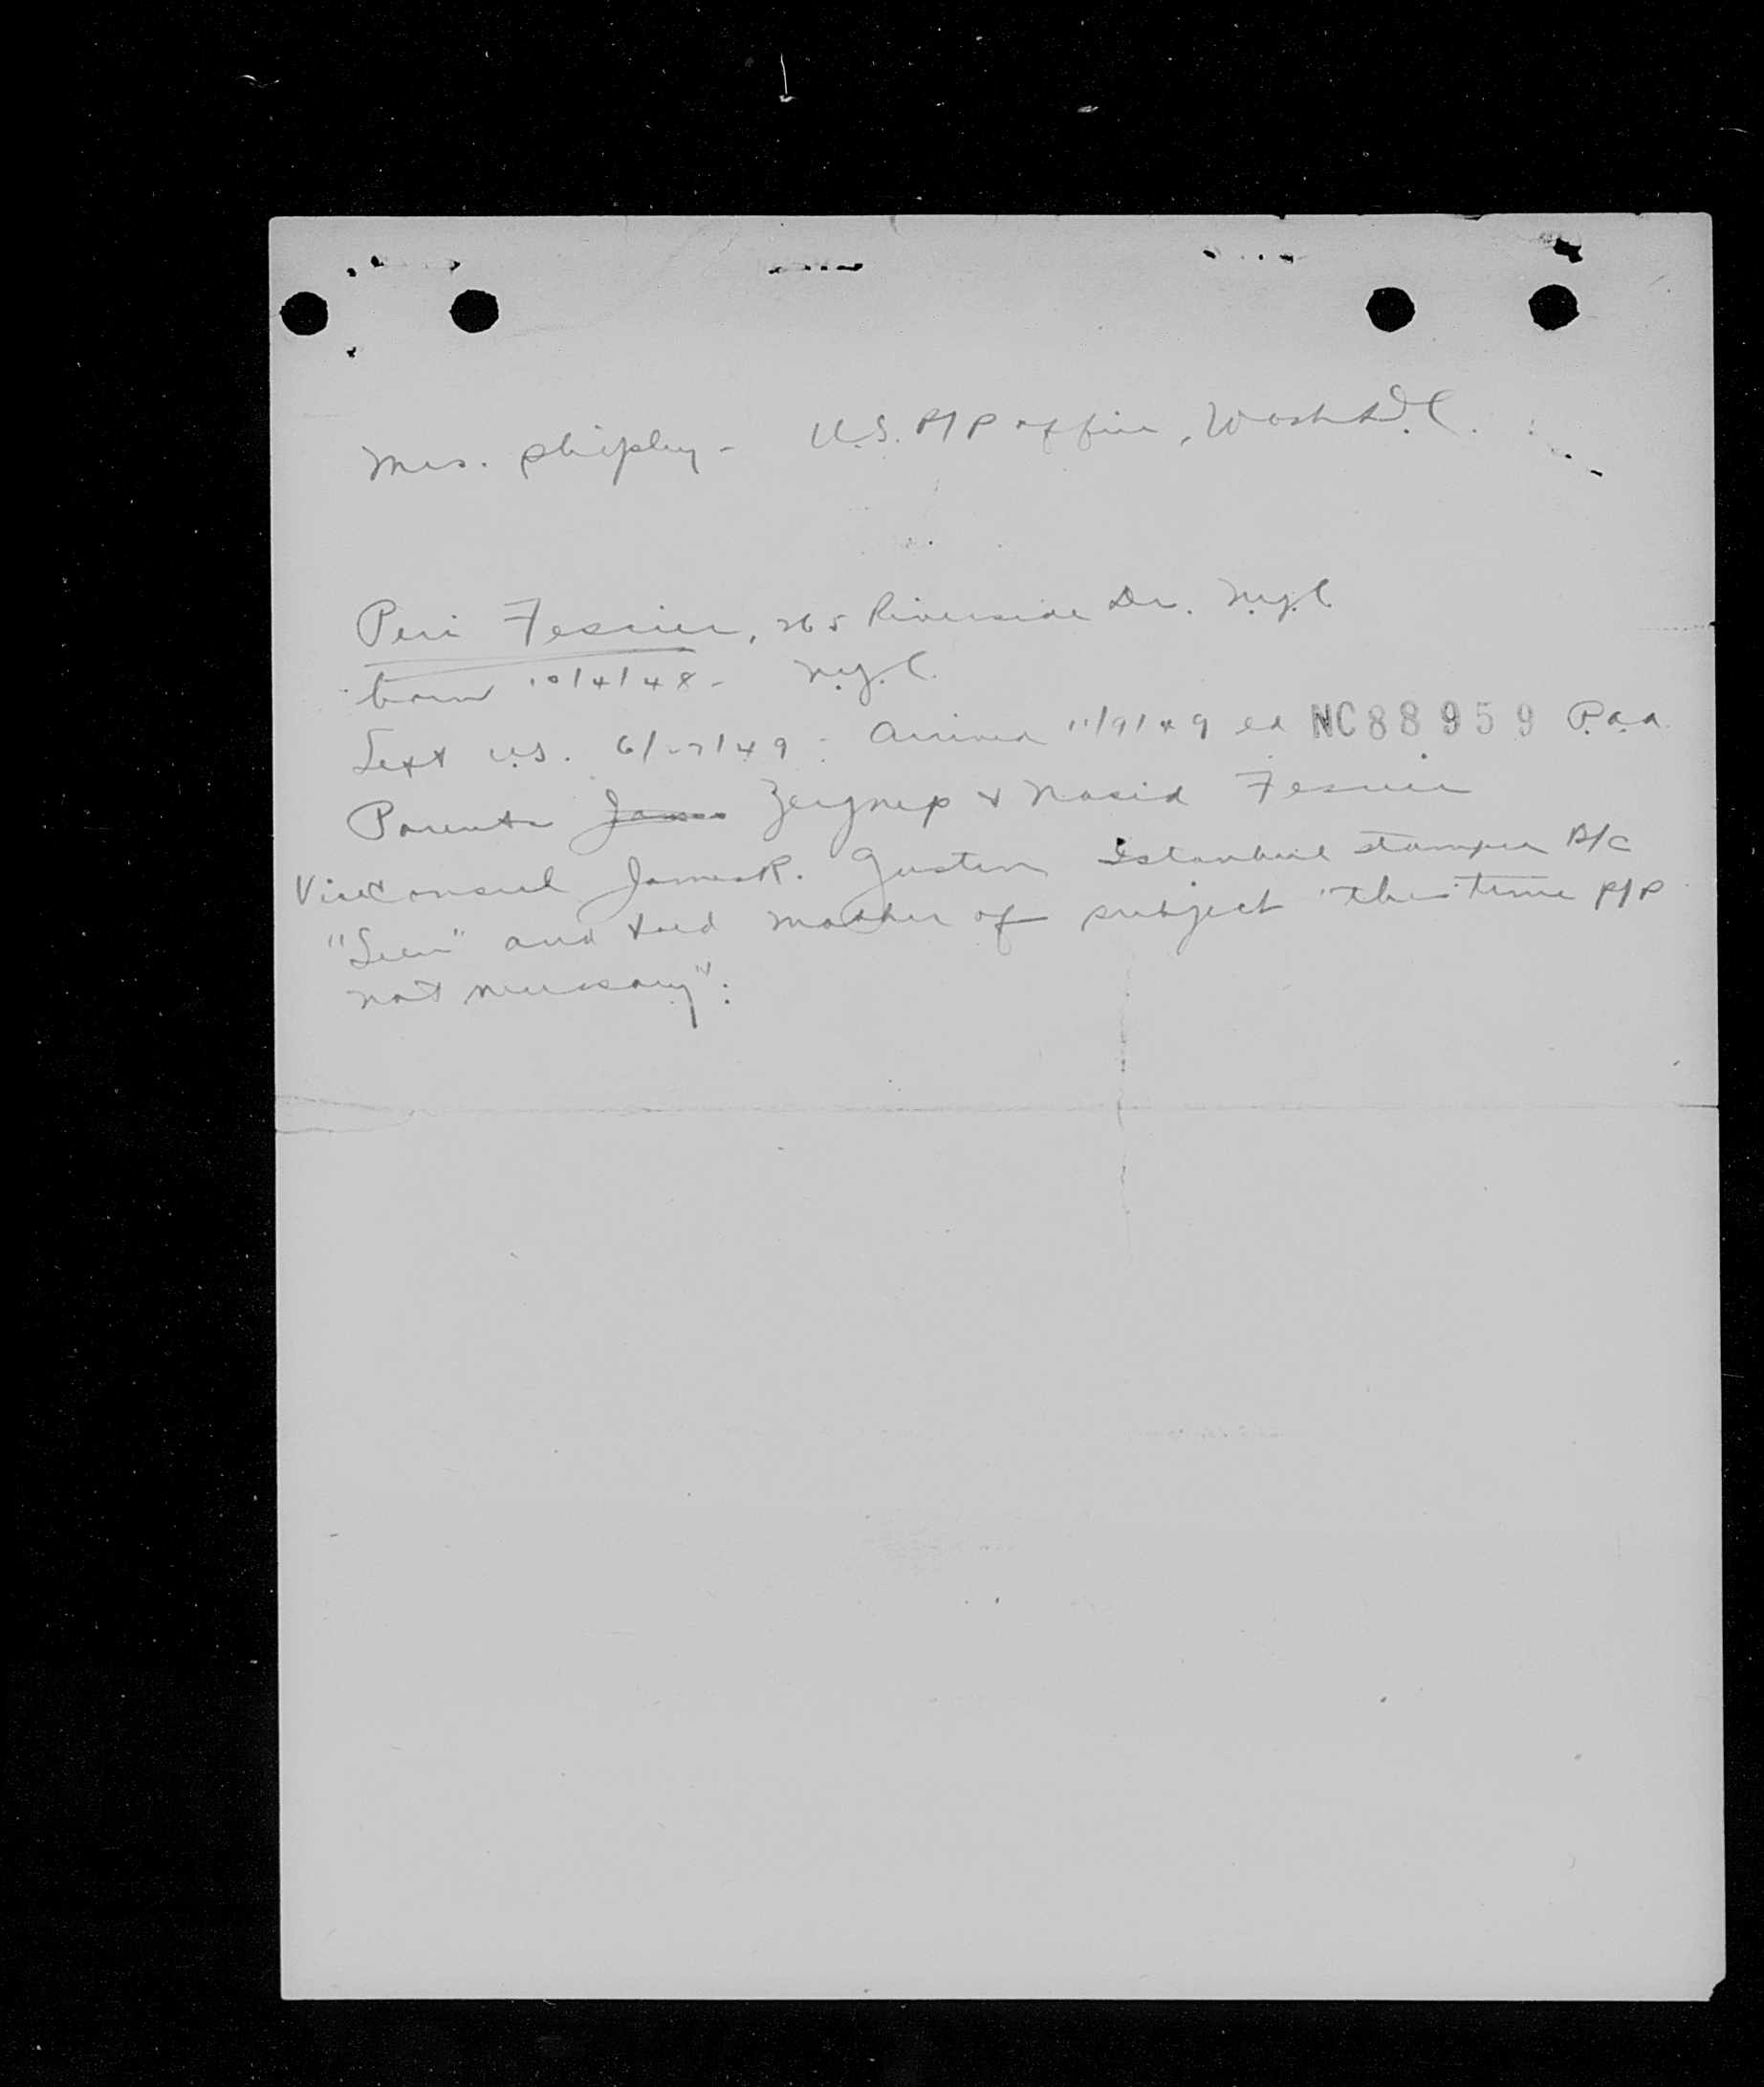 Mrs. Shipley - U.S. P/P office, Wash D.C.
Peri Fesnier, 265 Riverside Dr. N.Y.C
born 10/4/48 - N.Y.C.
Left U.S. 6/ /49 - Arrived 11/9/49 NC88959 P.a.a.
Parents Zeynep & Nasid Fesnier
Vice Consul James R. Gustin Istanbul stamped B/C
"Seen" and told mother of subject "the time P/P
not necessary".